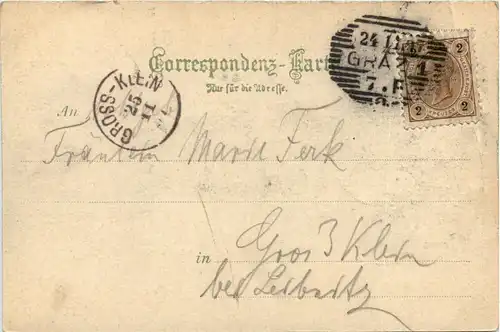 Correspondenz-Karte
Nur für die Adresse.
24
GRAZ 1
7.F
2 2
2 2
GROSS-KLEIN
25
11
An
Fräulein Marie Ferk
in Gros3 Klein
bei Leibnitz